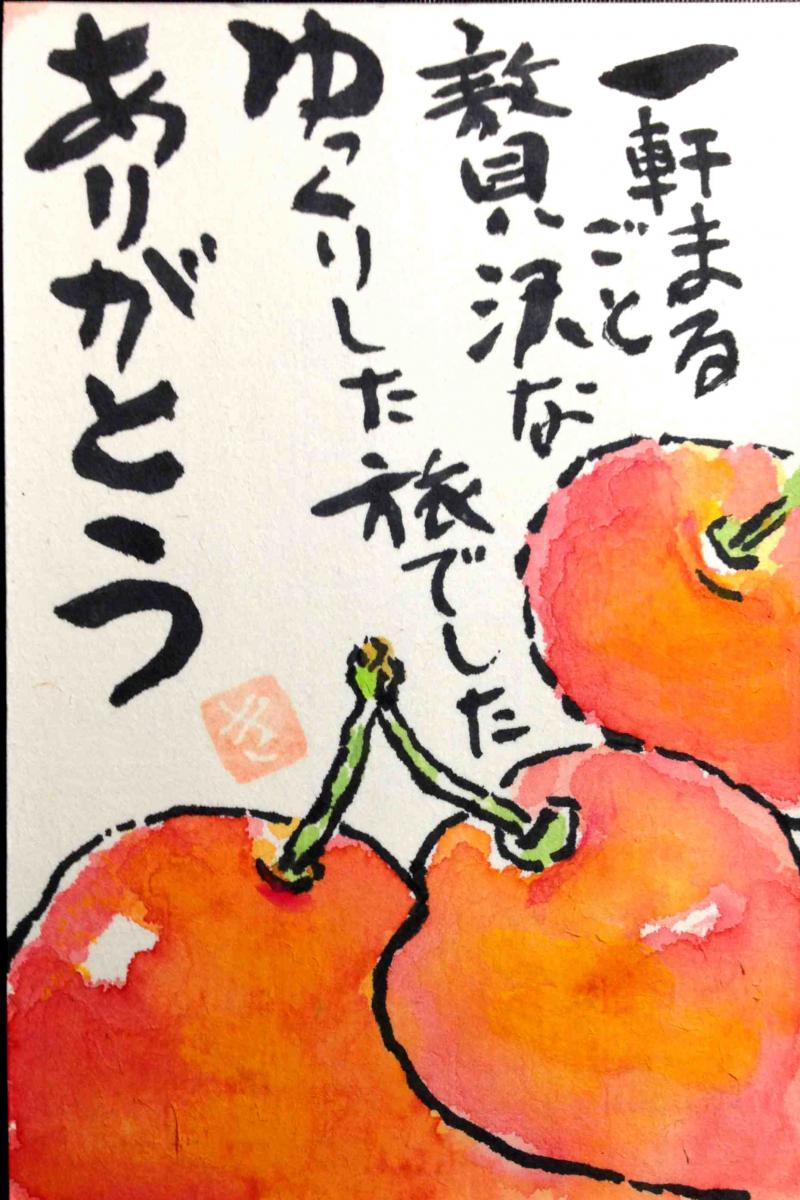 一軒まる
ごと
贅沢な
ゆっくりした
旅でした
ありがとう